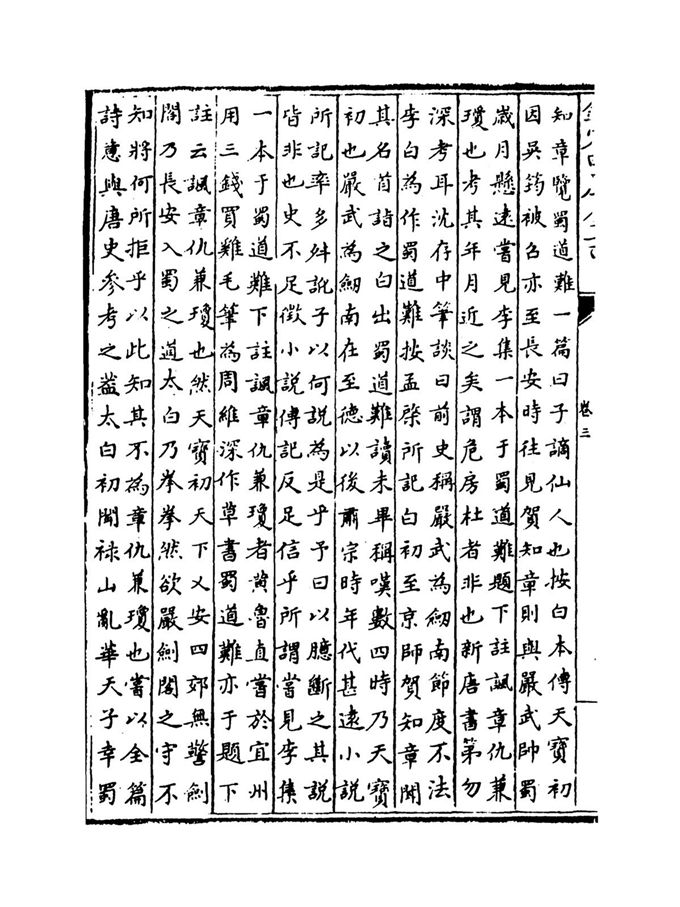 卷三
知章覽蜀道難一篇曰子謫仙人也按白本傳天寳初
因吳筠被召亦至長安時往見賀知章則與嚴武帥蜀
歲月懸遠嘗見李集一本于蜀道難題下註諷章仇兼
瓊也考其年月近之矣謂危房杜者非也新唐書第勿
深考耳沈存中筆談曰前史稱嚴武為劒南節度不法
李白為作蜀道難按孟棨所記白初至京師賀知章聞
其名首詣之白出蜀道難讀未畢稱嘆數四時乃天寳
初也嚴武為劒南在至德以後肅宗時年代甚遠小說
所記率多舛訛子以何説為是乎予曰以臆斷之其説
皆非也史不足徴小説傳記反足信乎所謂嘗見李集
一本于蜀道難下註諷章仇兼瓊者黄魯直嘗於宜州
用三錢買雞毛筆為周維深作草書蜀道難亦于題下
註云諷章仇兼瓊也然天寳初天下乂安四郊無警劍
閣乃長安入蜀之道太白乃拳拳然欲嚴劍閣之守不
知將何所拒乎以此知其不為章仇兼瓊也嘗以全篇
詩意與唐史參考之葢太白初聞祿山亂華天子幸蜀